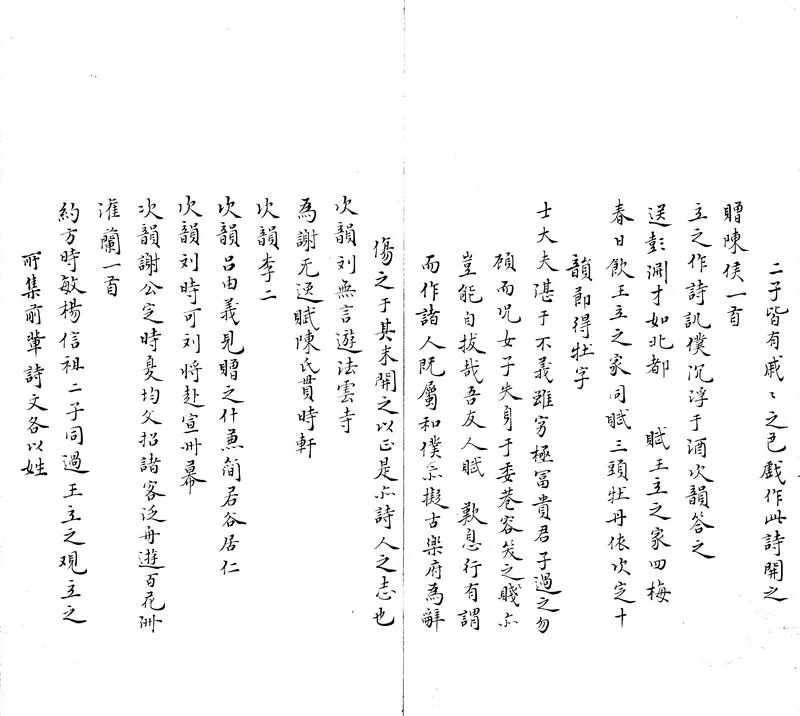 二子皆有戚〻之色戲作此詩開之
贈陳侯一首
立之作詩訊僕沉浮于酒次韻答之
送彭淵才如北都 賦王立之家四梅
春日飲王立之家同賦三頭牡丹依次定十
韻節得牡字
士大夫湛于不義雖窮極富貴君子過之勿
顧而况女子失身于委巷容笑之賤亦
豈能自拔哉吾友人賦 歎息行有謂
而作諸人既屬和僕亦擬古樂府為辭
傷之于其末開之以正是亦詩人之志也
次韻刘無言遊法雲寺
為謝无逸賦陳氏貫時軒
次韻李二
次韻呂由義見贈之什兼簡若谷居仁
次韻刘時可刘將赴宣州幕
次韻謝公定時夏均父招諸客泛舟遊百花洲
漼蘭一首
約方時敏楊信祖二子同過王立之觀立之
所集前輩詩文各以姓